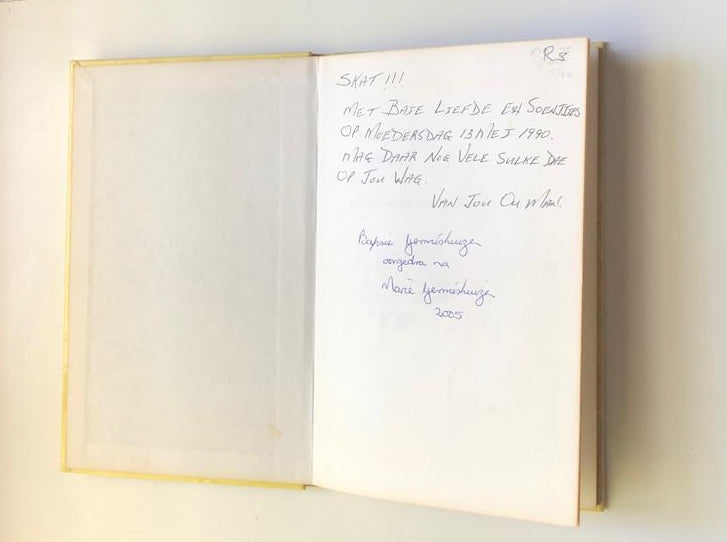 R8
SKAT!!!
MET BAIE LIEFDE EN SOENTJIES
OP MOEDERSDAG 13 MEI 1990.
MAG DAAR NOG VELE SULKE DAE
OP JOU WAG.
VAN JOU OU MAN!
Bapsie Germishuize
oorgedra na
Marie Germishuize
2005